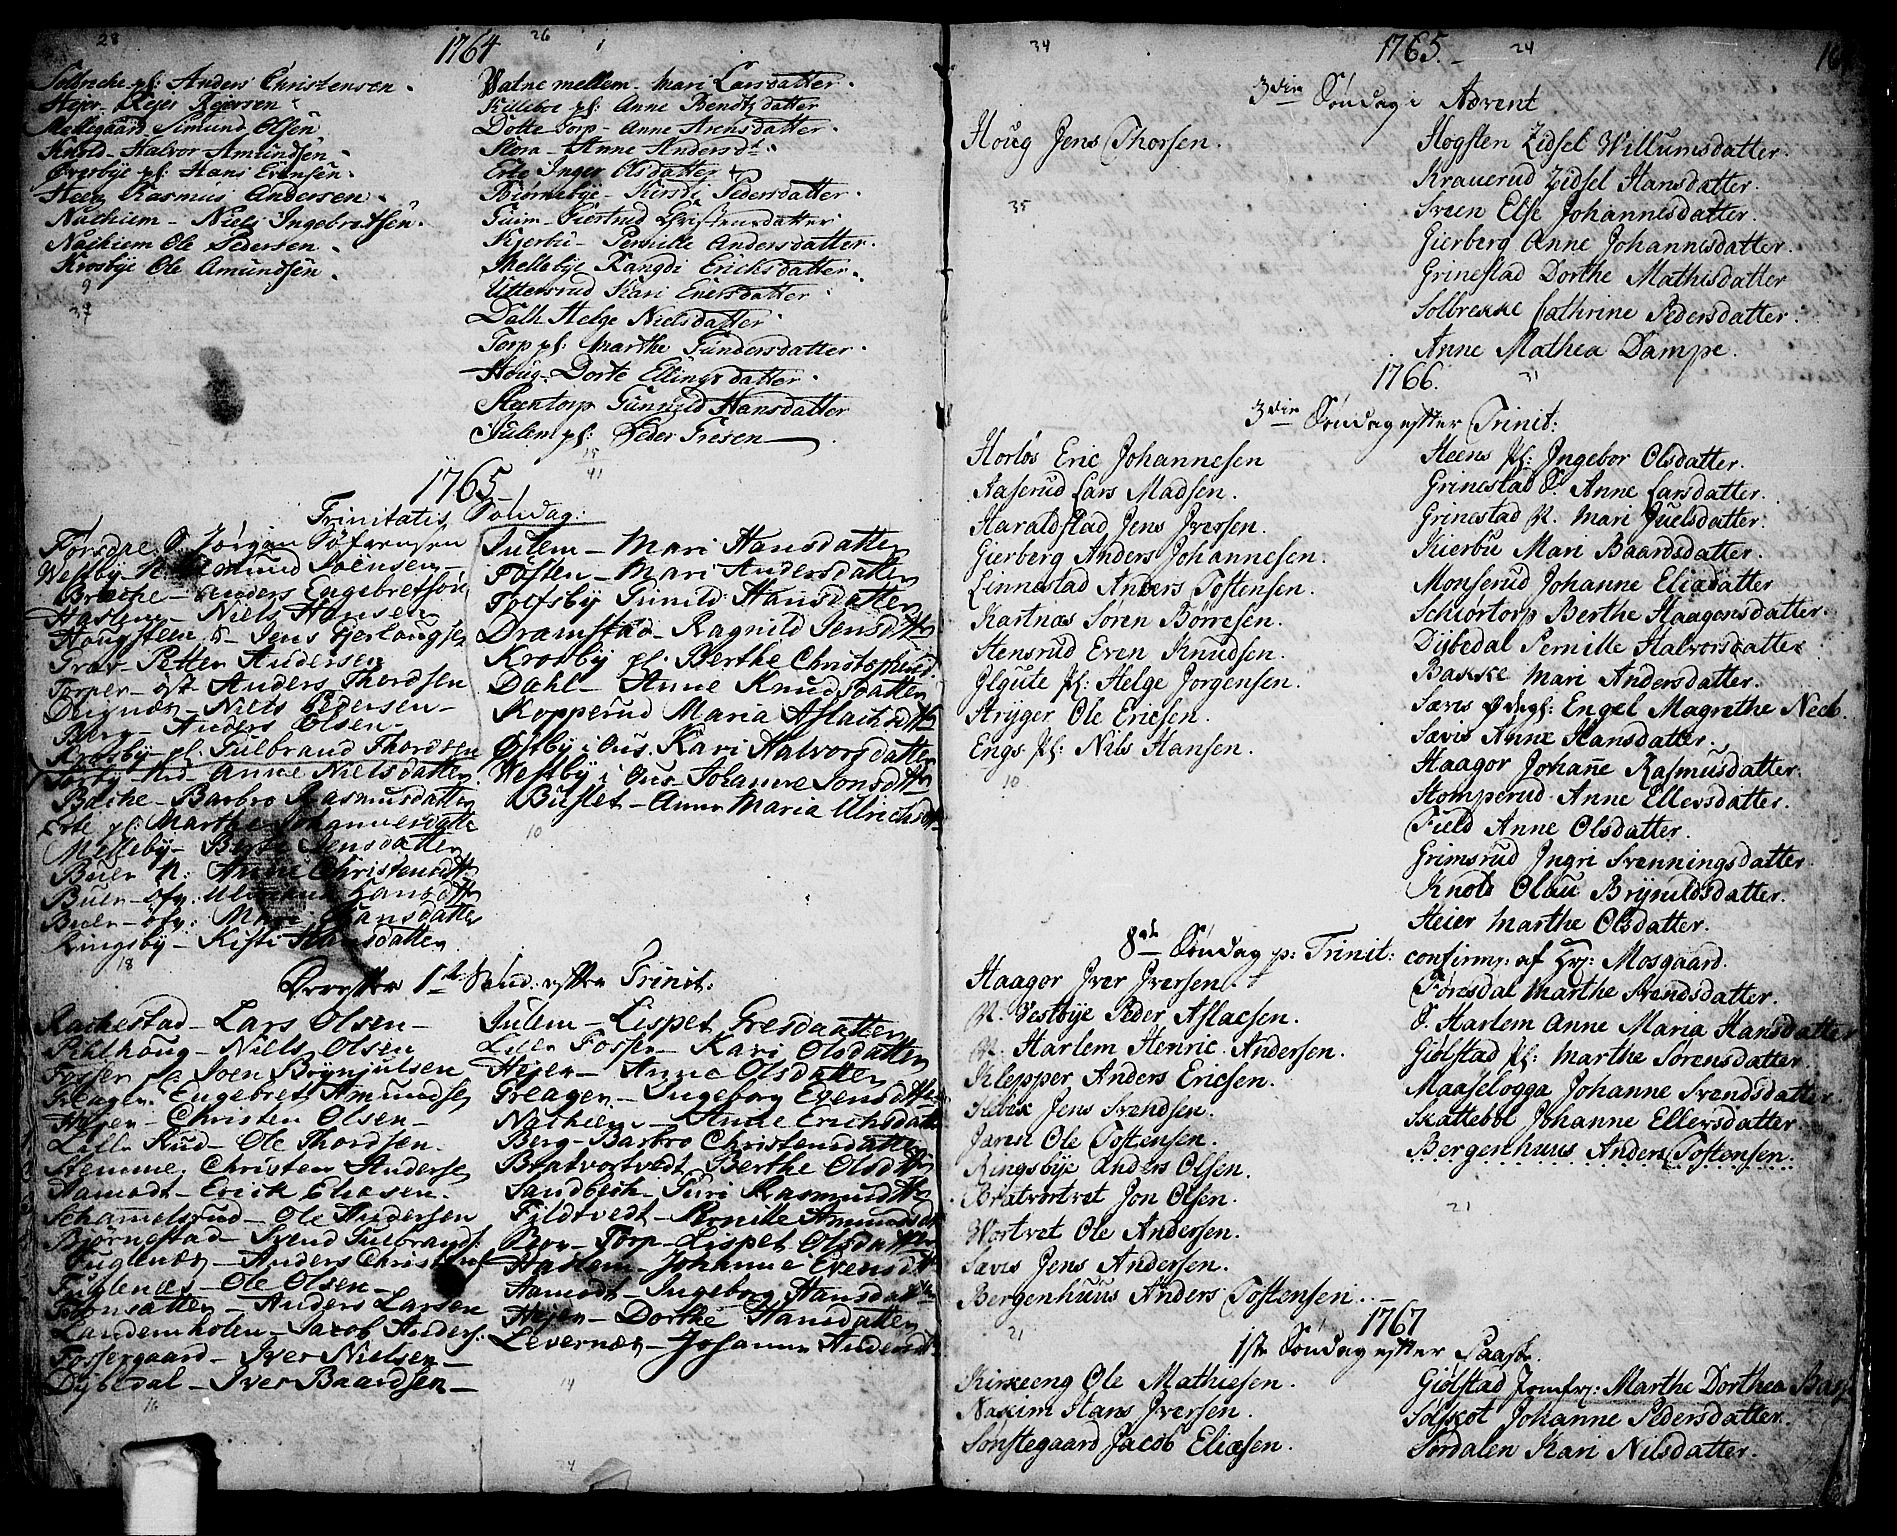 28
1764
Solbreke pl: Anders Christensen.
Hejer Rejer Rejersen
Mellegaard Simund Olsen
Knold - Halvor Amundsen.
Øverbye pl: Hans Evensen.
Heen Rasmus Andersen.
Nachiem - Niels Ingebretsen.
Nachiem Ole Pedersen.
Krosbye Ole Amundsen.
9
37
26
Vatne mellem - Mari Larsdatter
Killeboe pl: Anne Bendtzdatter
Dotte Torp - Anne Arensdatter.
Flora - Anne Andersdt.
Erte Inger Olsdatter
Biørnebye - Kirsti Pedersdatter.
Guim - Giertrud Christensdatter.
Kjerbu - Pernille Andersdatter.
Mellebye Rangdi Ericksdatter.
Uttersrud Kari Enersdatter
Dalh Helge Nielsdatter.
Torp pl: Marthe Gundersdatter.
Houg - Dorte Ellingsdatter.
Steentorp Gunnild Hansdatter
Julem pl: Peder Gresen
15
41
1765
Trinitatis Søndag:
Førsdae S Jørgen Søfrensen
Westby N. Amund Svensen -
Bræche - Anders Engebretsøn
Haslem - Niels Hansen
Hougsteen S - Jens Gerlougsen
Grav - Petter Andersen
Torper - øst Anders Thordsen
Deignæs - Niels Pedersen -
Berg - Anders Olsen -
Krosby pl: Gulbrand Thordsen
Torby Anne Nielsdatter
Bache - Barbro Rasmusdatter
Erte pl: Marthe Johannesdatter
Melleby - Berte Jensdatter
Buer N: Anne Christensdtr
Buer - øfv: Hansdtr
Buer - øfv: Mari Hansdatter
Ringsby - Kisti Hansdatter
18
Julem - Mari Hansdatter
Fosten - Mari Andersdatter
Tolfsby Gunild Hansdatter
Dramstad - Ragnild Jensdtr
Krosby pl: Berthe Christophersd
Dahl - Anne Knudsdatter
Kopperud Maria Aslachsdtr
Østby i Aus Kari Halvorsdatter
Westby i Aus Johanne Jonsdtr
Buslet - Anna Maria Ulrichsdtr
10
1st Sønd: efter Trinit:
Rachestad - Lars Olsen -
Pihlhoug - Niels Olsen
Fosser pl Joen Brynjulsen
Greager Engebret Amundsen
Hejer - Christen Olsen -
Lille Rud - Ole Thordsen.
Stemme. Christen Andersen
Aamodt - Erick Eliasen.
Schamelsrud - Ole Andersen
Bjørnestad - Svend Gulbrands:
Fuglenæs - Anders Christens
Fuglenæs - Ole Olsen -
Tronsætter - Anders Larsen
Landemholen - Jacob Anders:
Fossergaard - Iver Nielsen -
Dybedal - Iver Baardsen -
16
Julem - Lispet Gresdaatter
Lille Fosser - Kari Olsdatter
Hejer - Anne Olsdatter
Greager - Ingeborg Evensdtr
Nachiem - Anne Erichsdatter
Berg - Barbro Christensdatter
Bratvortvedt Berthe Olsdtr
Sandbech - Guri Rasmusdtr
Fildtvedt - Pernille Amundsdtr
Boe - Torp - Lispet Olsdatter
Haslem - Johanne Evensdtr
Aamodt - Ingeborg Hansdatter
Hejer - Dorthe Hansdatter
Levernæs - Johanne Andersdtr
14
34
34
1765.
24
3die Søndag i Advent
Houg Jens Thorsen.
35
Hogsten Zidsel Willumsdatter.
Krauerud Zidsel Hansdatter.
Sveen Else Johannesdatter.
Gierberg Anne Johannesdatter.
Grinestad Dorthe Mathisdatter
Solbrekke Cathrine Pedersdatter.
Anne Mathea Dampe.
1766.
31
3die Søndag efter Trinit:
Horløs Eric Johannesen
Raserud Lars Madsen.
Haraldstad Jens Jversen.
Gierberg Anders Johannesen.
Linnestad Anders Tostensen.
Kartnæs Søren Børresen.
Stensrud Even Knudsen.
Jlgute pl: Helge Jorgensen.
Stryger Ole Ericsen.
Engs pl: Nils Hansen.
10
Heens pl: Jngebor Olsdatter.
Grinestad S. Anne Larsdatter.
Grinestad N. Mari Juelsdatter.
Kierbu Mari Baardsdatter.
Monserud Johanne Eliædatter
Schiortorp Berthe Haagensdatter.
Dijbedal Pernille Halvorsdatter
Bakke Mari Andersdatter.
Sævis Ødegl: Engel Magrethe Neeb.
Sævis Anne Hansdatter.
Haagor Johane Rasmusdatter.
Stomperud Anne Ellevsdatter.
Field Anne Olsdatter.
Grimsrud Jngri Svenningsdatter
Knold Olau Brynildsdatter.
Heier Marthe Olsdatter.
8de Søndag p: Trinit: confirm: af Hr: Mosgaard.
Haagor Jver Jversen.
N. Vestbye Peder Aslacsen.
N. Harlem Henric Andersen.
Klepper Anders Ericsen.
Slebek Jens Svendsen.
Janst Ole Tostensen.
Ringsbye Anders Olsen.
Bratvortvet Jon Olsen.
Wortvet Ole Andersen.
Sævis Jens Andersen.
Bergenhuus Anders Tostensen.
21
Føresdal Marthe Svendsdatter.
S. Harlem Anne Maria Hansdatter
Giølstad pl: Marthe Sørensdatter
Maaselogga Johanne Svendsdatter.
Skattebøl Johanne Ellevsdatter
Bergenhuus Anders Tostensen.
21
1767
1ste Søndag efter Paaske.
Kirkeeng Ole Mathiesen.
Nakim Hans Jversen.
Tonstegaard Jacob Eliæsen.
Giølstad Jomfru: Marthe Dorthea Bas
Solskot Johanne Pedersdatter.
Sørdalen Kari Nilsdatter.